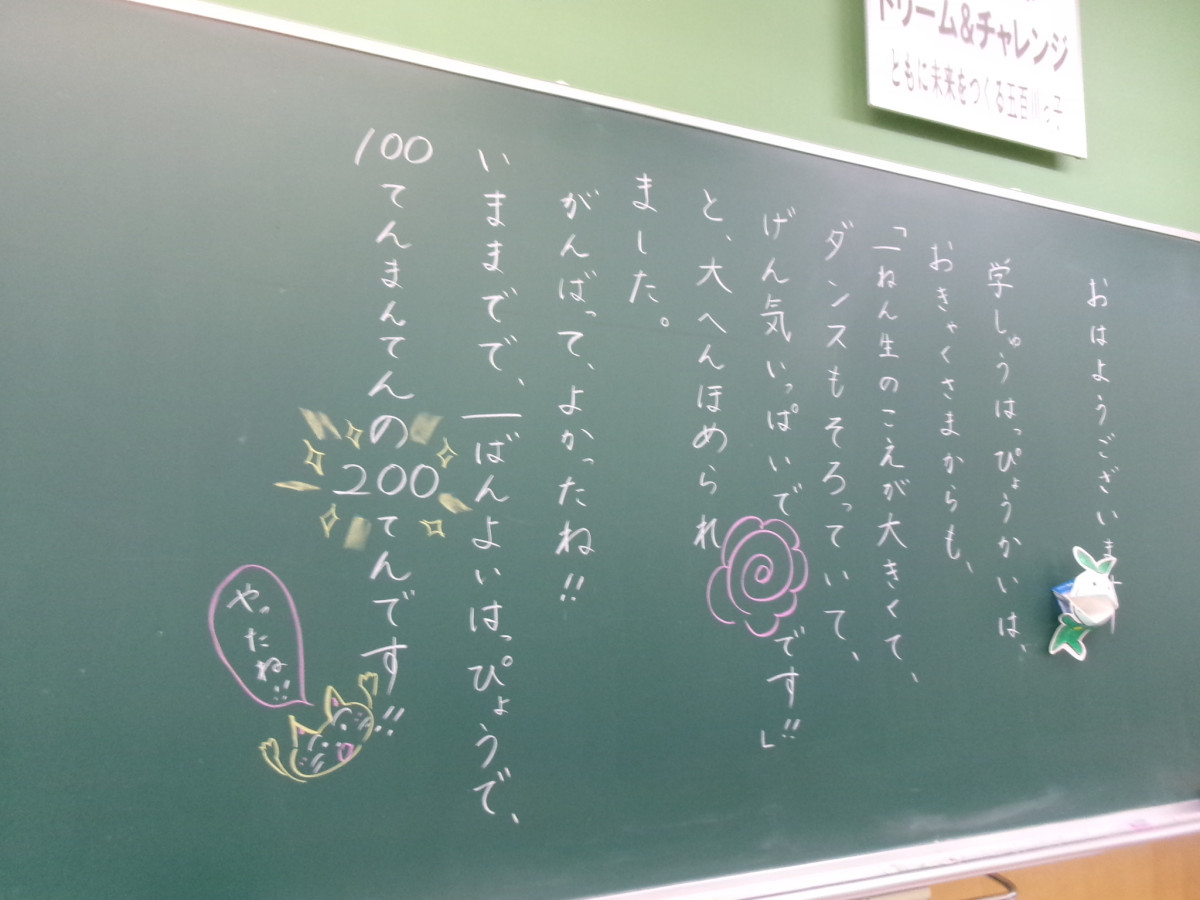 ドリーム&チャレンジ
ともに未来をつくる五百川っ子
おはようございま
学しゅうはっぴょうかいは、
おきゃくさまからも、
「一ねん生のこえが大きくて、
ダンスもそろっていて、
げん気いっぱいで
です!!」
と、大へんほめられ
ました。
がんばって、よかったね!!
いままでで、一ばんよいはっぴょうで、
100てんまんてんの200てんです!!
やったね!!